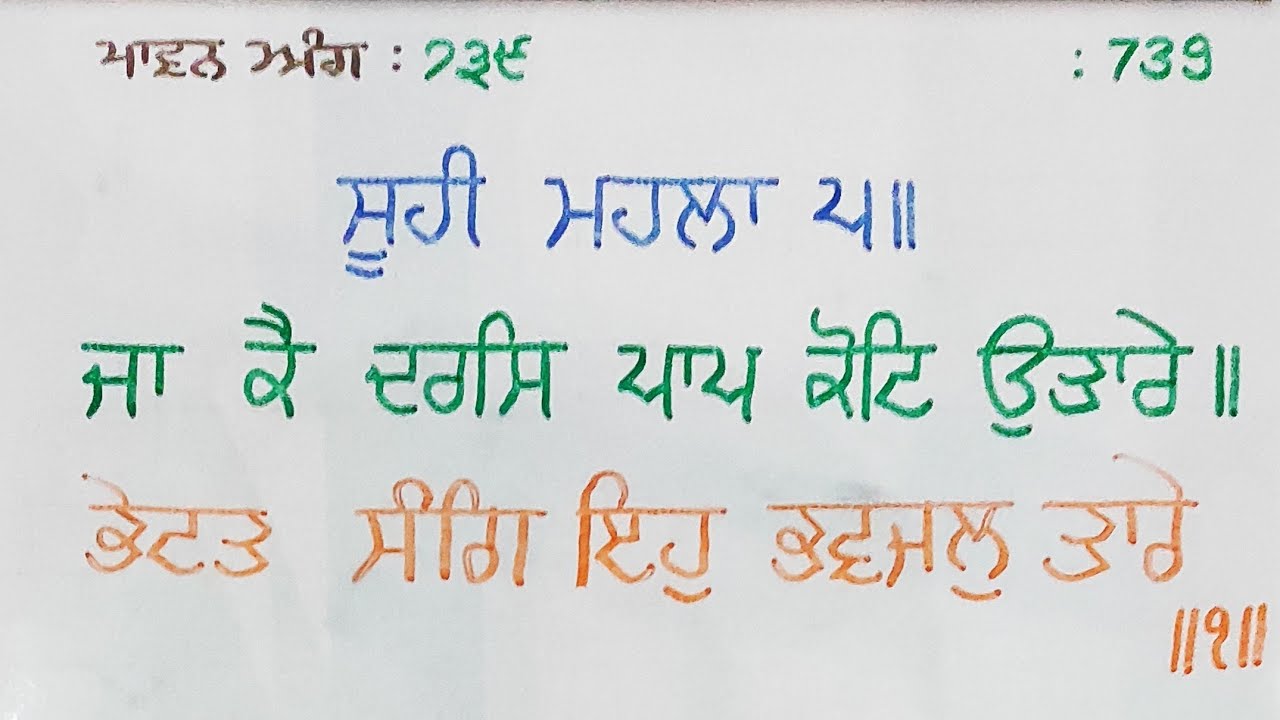 ਪਾਵਨ ਅੰਗ : ੭੩੯ : 739
ਸੂਹੀ ਮਹਲਾ ੫॥
ਜਾ ਕੈ ਦਰਸਿ ਪਾਪ ਕੋਟਿ ਉਤਾਰੇ॥
ਭੇਟਤ ਸੰਗਿ ਇਹੁ ਭਵਜਲੁ ਤਾਰੇ
॥੧॥